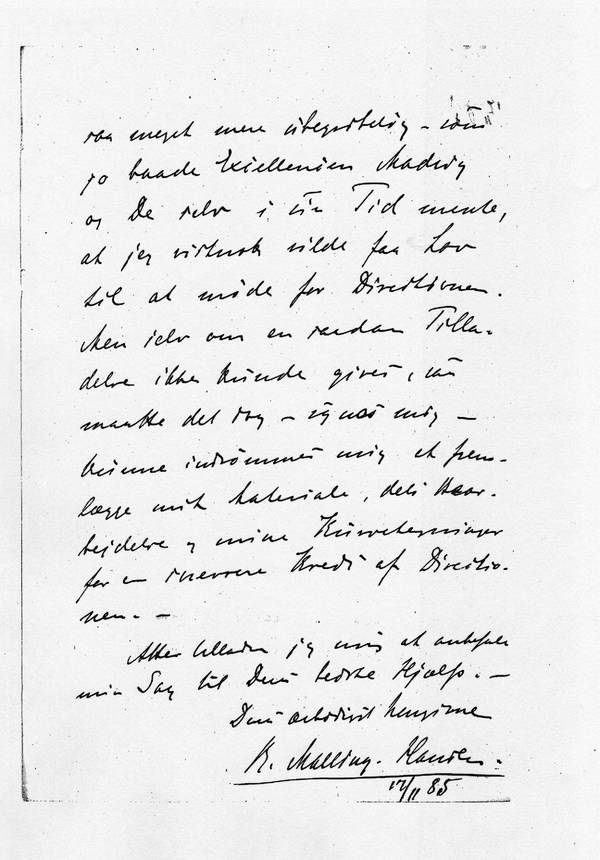 saa meget mere ubegribelig – som
jo baade Excellencen Madvig
og De selv i sin Tid mente,
at jeg virkelig vilde faa Lov
til at møde for Directionen.
Men selv om en saadan Tilla-
delse ikke kunde gives, saa
maatte det dog – synes mig –
kunne indrømmes mig at frem-
lægge mit Materiale, dets Bear-
bejdelse og mine Kurvetegninger
for en snevrere Kreds af Directio-
nen. –
Atter tillader jeg mig at anbefale
min Sag til Deres bedste Hjælp. –
Deres ærbødigst hengivne
R. Malling-Hansen.
17/11 85